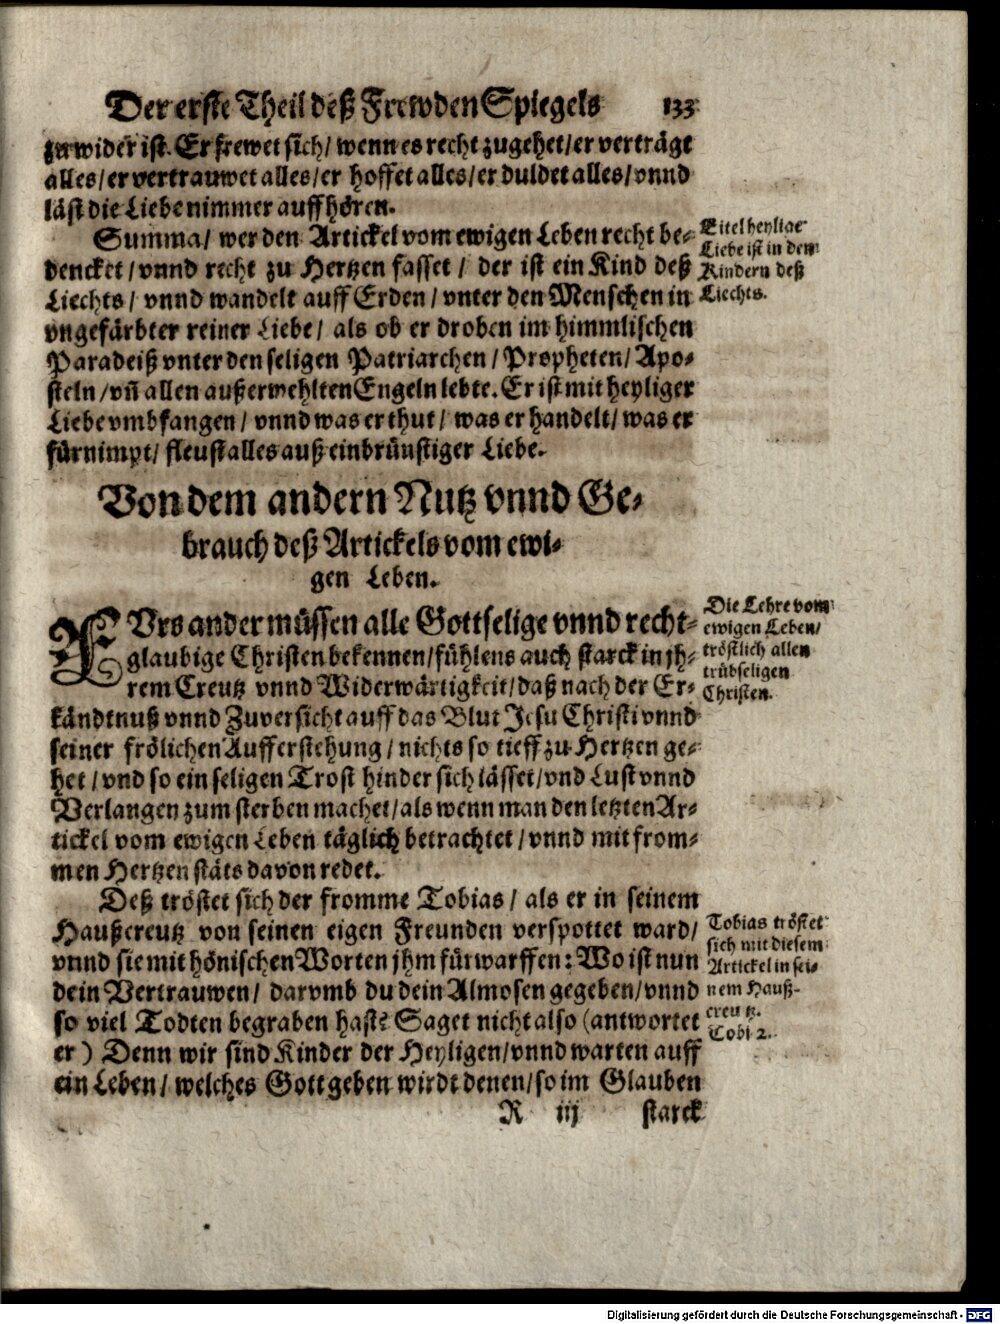 Der erste Theil deß Frewden Spiegels 133
zu wider ist. Er frewet sich/ wenn es recht zugehet/ er verträgt
alles/ er vertrauwet alles/ er hoffet alles/ er duldet alles/ vnnd
läst die Liebe nimmer auffhören.
Summa/ wer den Artickel vom ewigen Leben recht be-
dencket/ vnnd recht zu Hertzen fasset/ der ist ein Kind deß
Liechts/ vnnd wandelt auff Erden/ vnter den Menschen in
vngefärbter reiner Liebe/ als ob er droben im himmlischen
Paradeiß vnter den seligen Patriarchen/ Propheten/ Apo-
steln/ vñ allen außerwehlten Engeln lebte. Er ist mit heyliger
Liebe vmbfangen/ vnnd was er thut/ was er handelt/ was er
fürnimpt/ fleust alles auß einbrünstiger Liebe.
Eitel heylige
Liebe ist in den
Kindern deß
Liechts.
Von dem andern Nutz vnnd Ge-
brauch deß Artickels vom ewi-
gen Leben.
FVrs ander müssen alle Gottselige vnnd recht-
glaubige Christen bekennen/ fühlens auch starck in jh-
rem Creutz vnnd Widerwärtigkeit/ daß nach der Er-
kändtnuß vnnd Zuversicht auff das Blut Jesu Christi vnnd
seiner frölichen Aufferstehung/ nichts so tieff zu Hertzen ge-
het/ vnd so ein seligen Trost hinder sich lässet/ vnd Lust vnnd
Verlangen zum sterben machet/ als wenn man den letzten Ar-
tickel vom ewigen Leben täglich betrachtet/ vnnd mit from-
men Hertzen stäts davon redet.
Die Lehre vom
ewigen Leben/
tröstlich allen
trübseligen
Christen.
Deß tröstet sich der fromme Tobias/ als er in seinem
Haußcreutz von seinen eigen Freunden verspottet ward/
vnnd sie mit hönischen Worten jhm fürwarffen: Wo ist nun
dein Vertrauwen/ darvmb du dein Almosen gegeben/ vnnd
so viel Todten begraben hast? Saget nicht also (antwortet
er) Denn wir sind Kinder der Heyligen/ vnnd warten auff
ein Leben/ welches Gott geben wirdt denen/ so im Glauben
Tobias tröstet
sich mit diesem
Artickel in sei-
nem Hauß-
creutz.
Tobi 2.
R iij starck
Digitalisierung gefördert durch die Deutsche Forschungsgemeinschaft - DFG